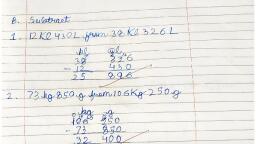 B. Subtract
1. 12Kl 430L from 38 Kl 326 L
38 326
- 12 430
25 896
2. 73 kg 850 g from 106 Kg 250 g
kg g
106 250
- 73 850
32 400